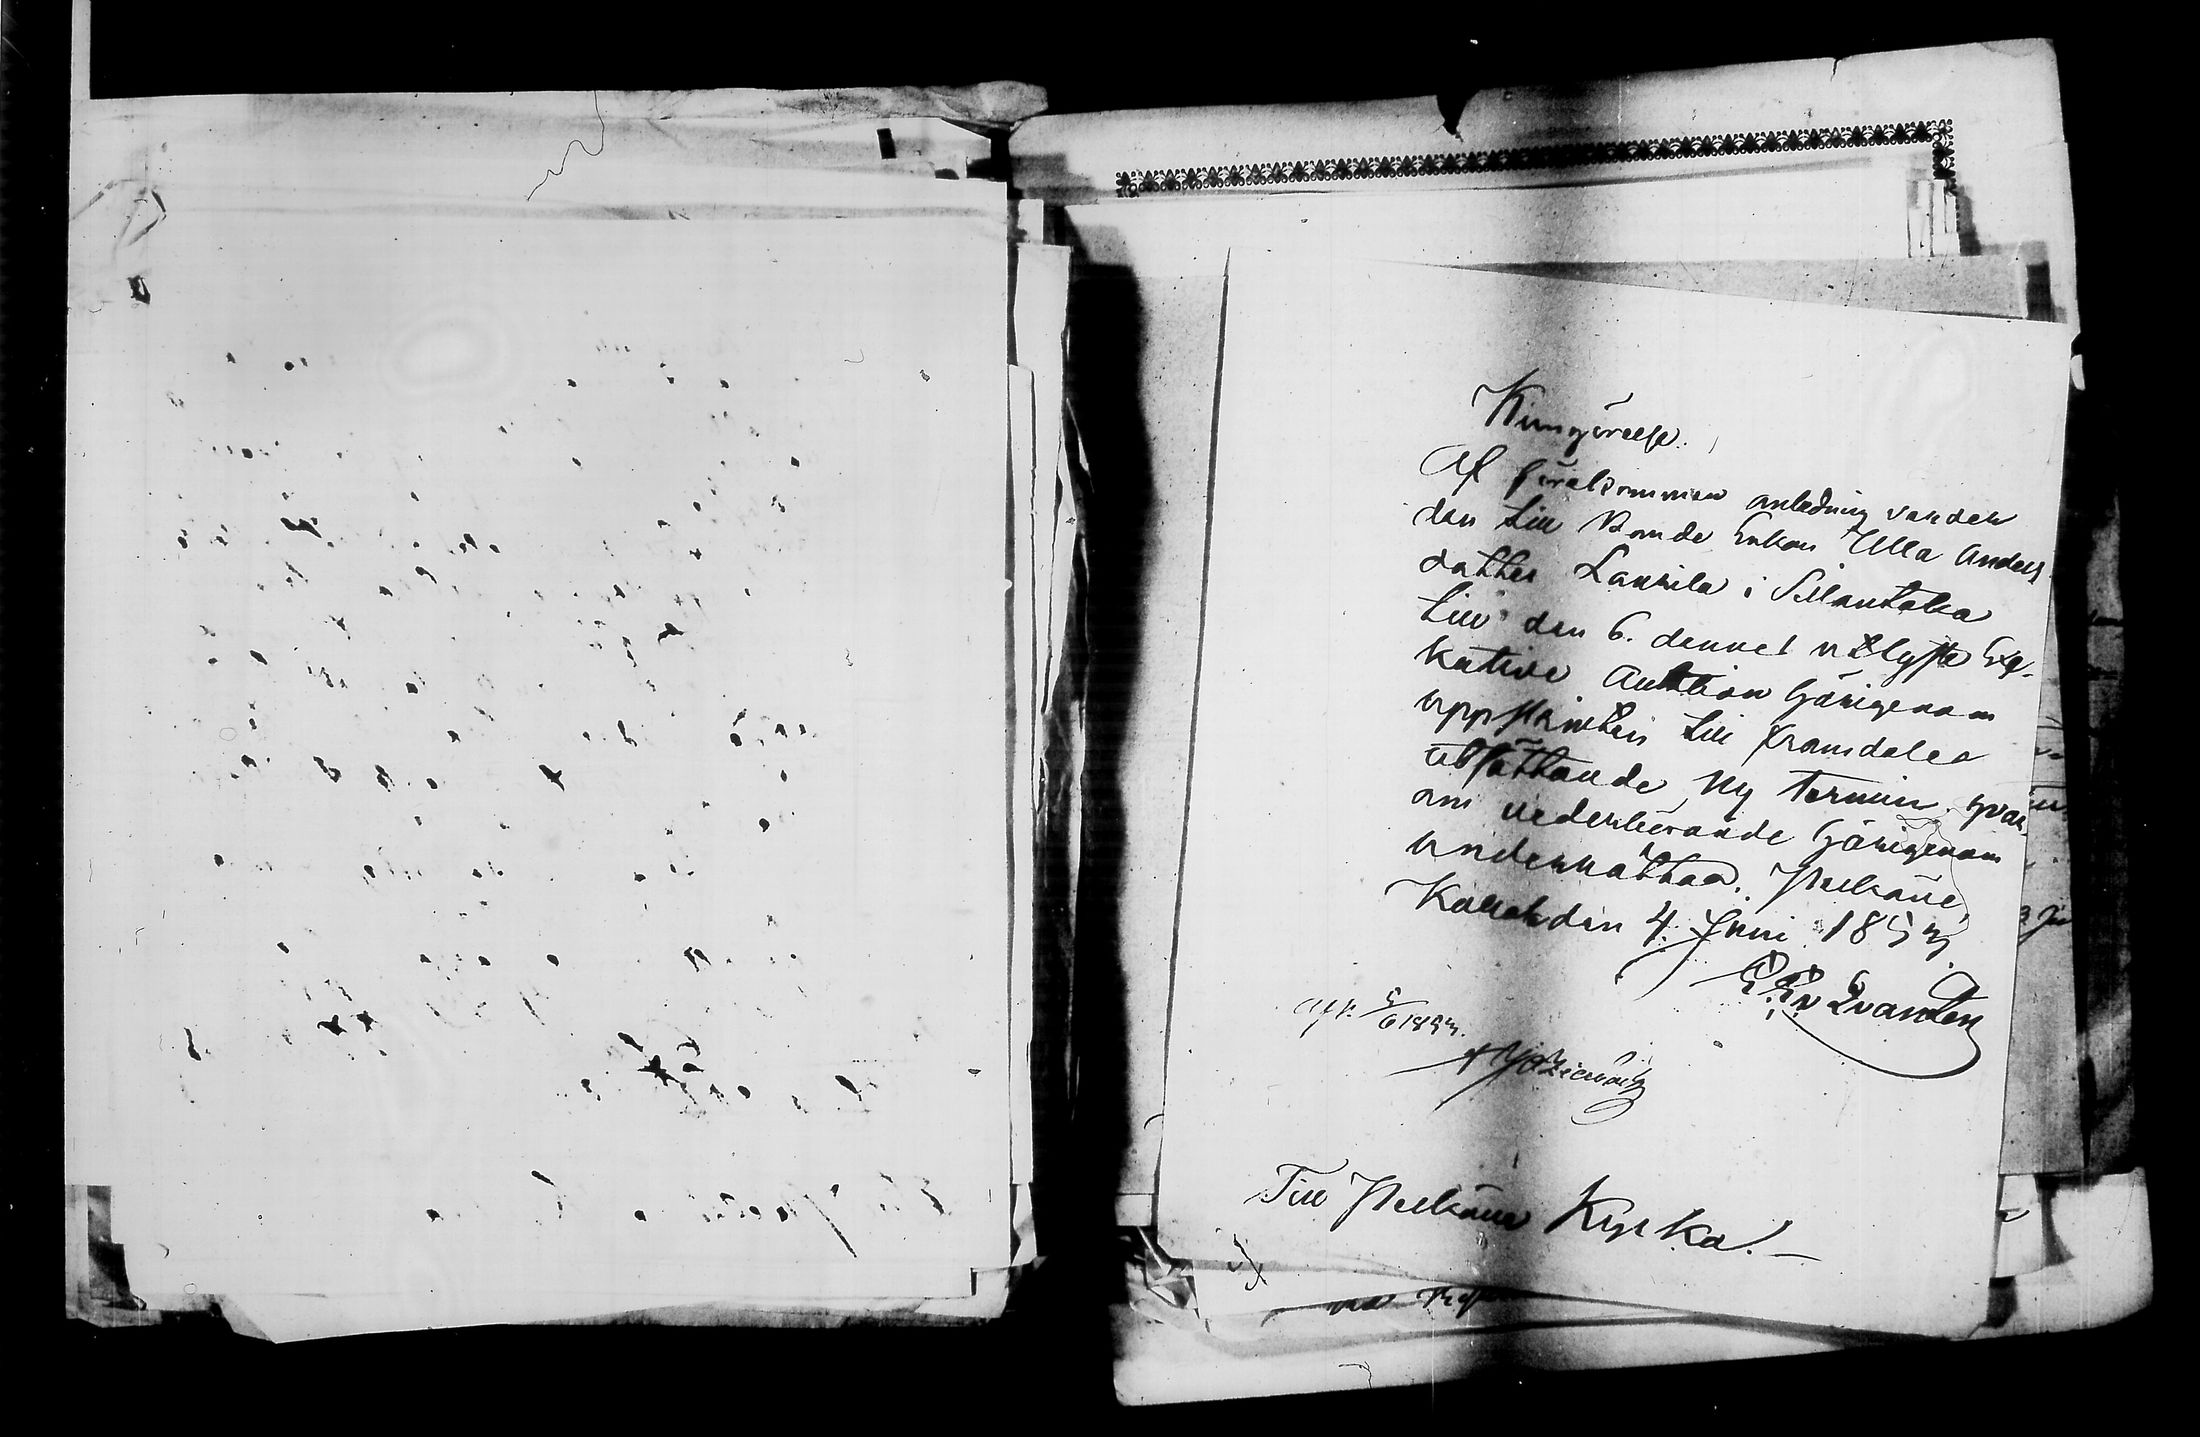 Kungörelse.
Af förekommen anledning varder
den till Bonde Enkan Ulla Anders
dotter Laurila i Sillantaka
till den 6. dennes utlyste Exe-
kutive Auktion härigenom
uppskjuten till framdeles
utsättande ny termin, hvar-
om vederbörande härigenom
underrättas. Pelkäne,
den 4. Juni 1893.
Till Pelkäne Kyrka!